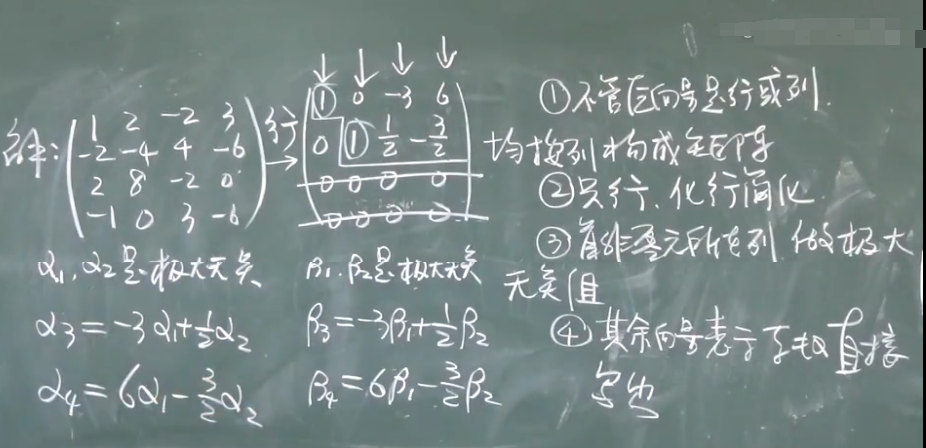 解: ( 1 2 -2 3 ) 行→ ( ① 0 -3 6 )
( -2 -4 4 -6 ) ( 0 ① 1/2 -3/2 )
( 2 8 -2 0 ) ( 0 0 0 0 )
( -1 0 3 -6 ) ( 0 0 0 0 )
α₁, α₂是极大无关
α₃=-3α₁+½α₂
α₄=6α₁-3/2α₂
β₁, β₂是极大无关
β₃=-3β₁+½β₂
β₄=6β₁-3/2β₂
①不管向量是行或列.
均按列构成矩阵
②只行、化行简化
③首非零元所在列做极大
无关组
④其余向量表示系数直接
写出